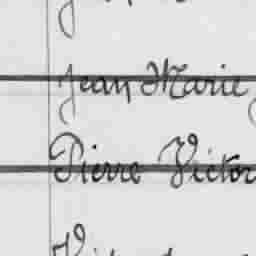 Jean Marie
Pierre Victor